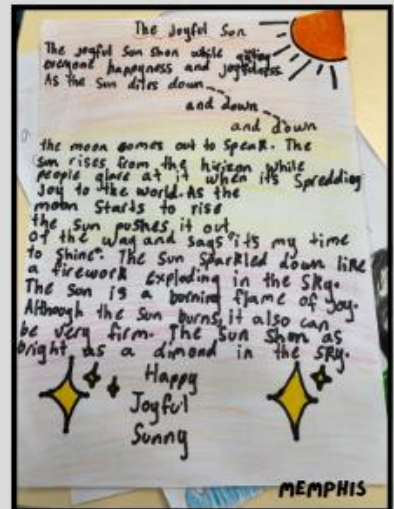 The Joyful Sun
The joyful Sun shon while giving
everyone happyness and joyfulness.
As the Sun dites down
and down
and down
the moon comes out to speak. The
sun rises from the hirizon while
people glare at it when its Spredding
Joy to the world. As the
moon Starts to rise
the sun pushes it out
of the way and says "its my time
to shine". The Sun Sparkled down like
a firework exploding in the Sky.
The Sun is a borning flame of joy.
Although the sun burns, it also can
be very firm. The Sun shon as
bright as a dimond in the sky.
Happy
Joyful
Sunny
MEMPHIS